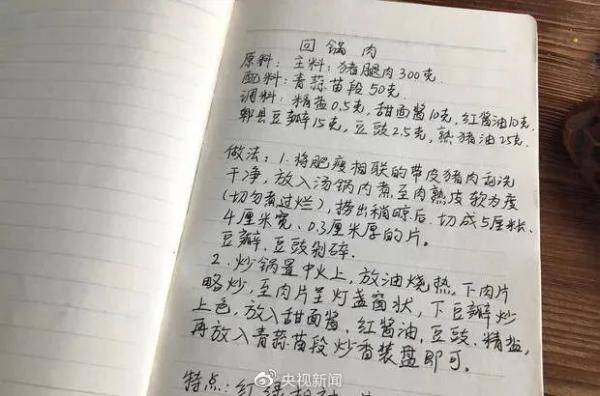 回锅肉
原料：主料：猪腿肉300克.
配料：青蒜苗段50克.
调料：精盐0.5克，甜面酱10克，红酱油10克，
郫县豆瓣15克，豆豉2.5克，熟猪油25克.
做法：1.将肥瘦相联的带皮猪肉刮洗
干净，放入汤锅内煮至肉熟皮软为度
（切勿煮过烂），捞出稍晾后，切成5厘米长、
4厘米宽、0.3厘米厚的片。
豆瓣、豆豉剁碎.
2.炒锅置中火上，放油烧热，下肉片
略炒，至肉片呈灯盏窝状，下豆瓣炒
上色，放入甜面酱、红酱油、豆豉、精盐，
再放入青蒜苗段炒香装盘即可。
特点：红绿相
央视新闻